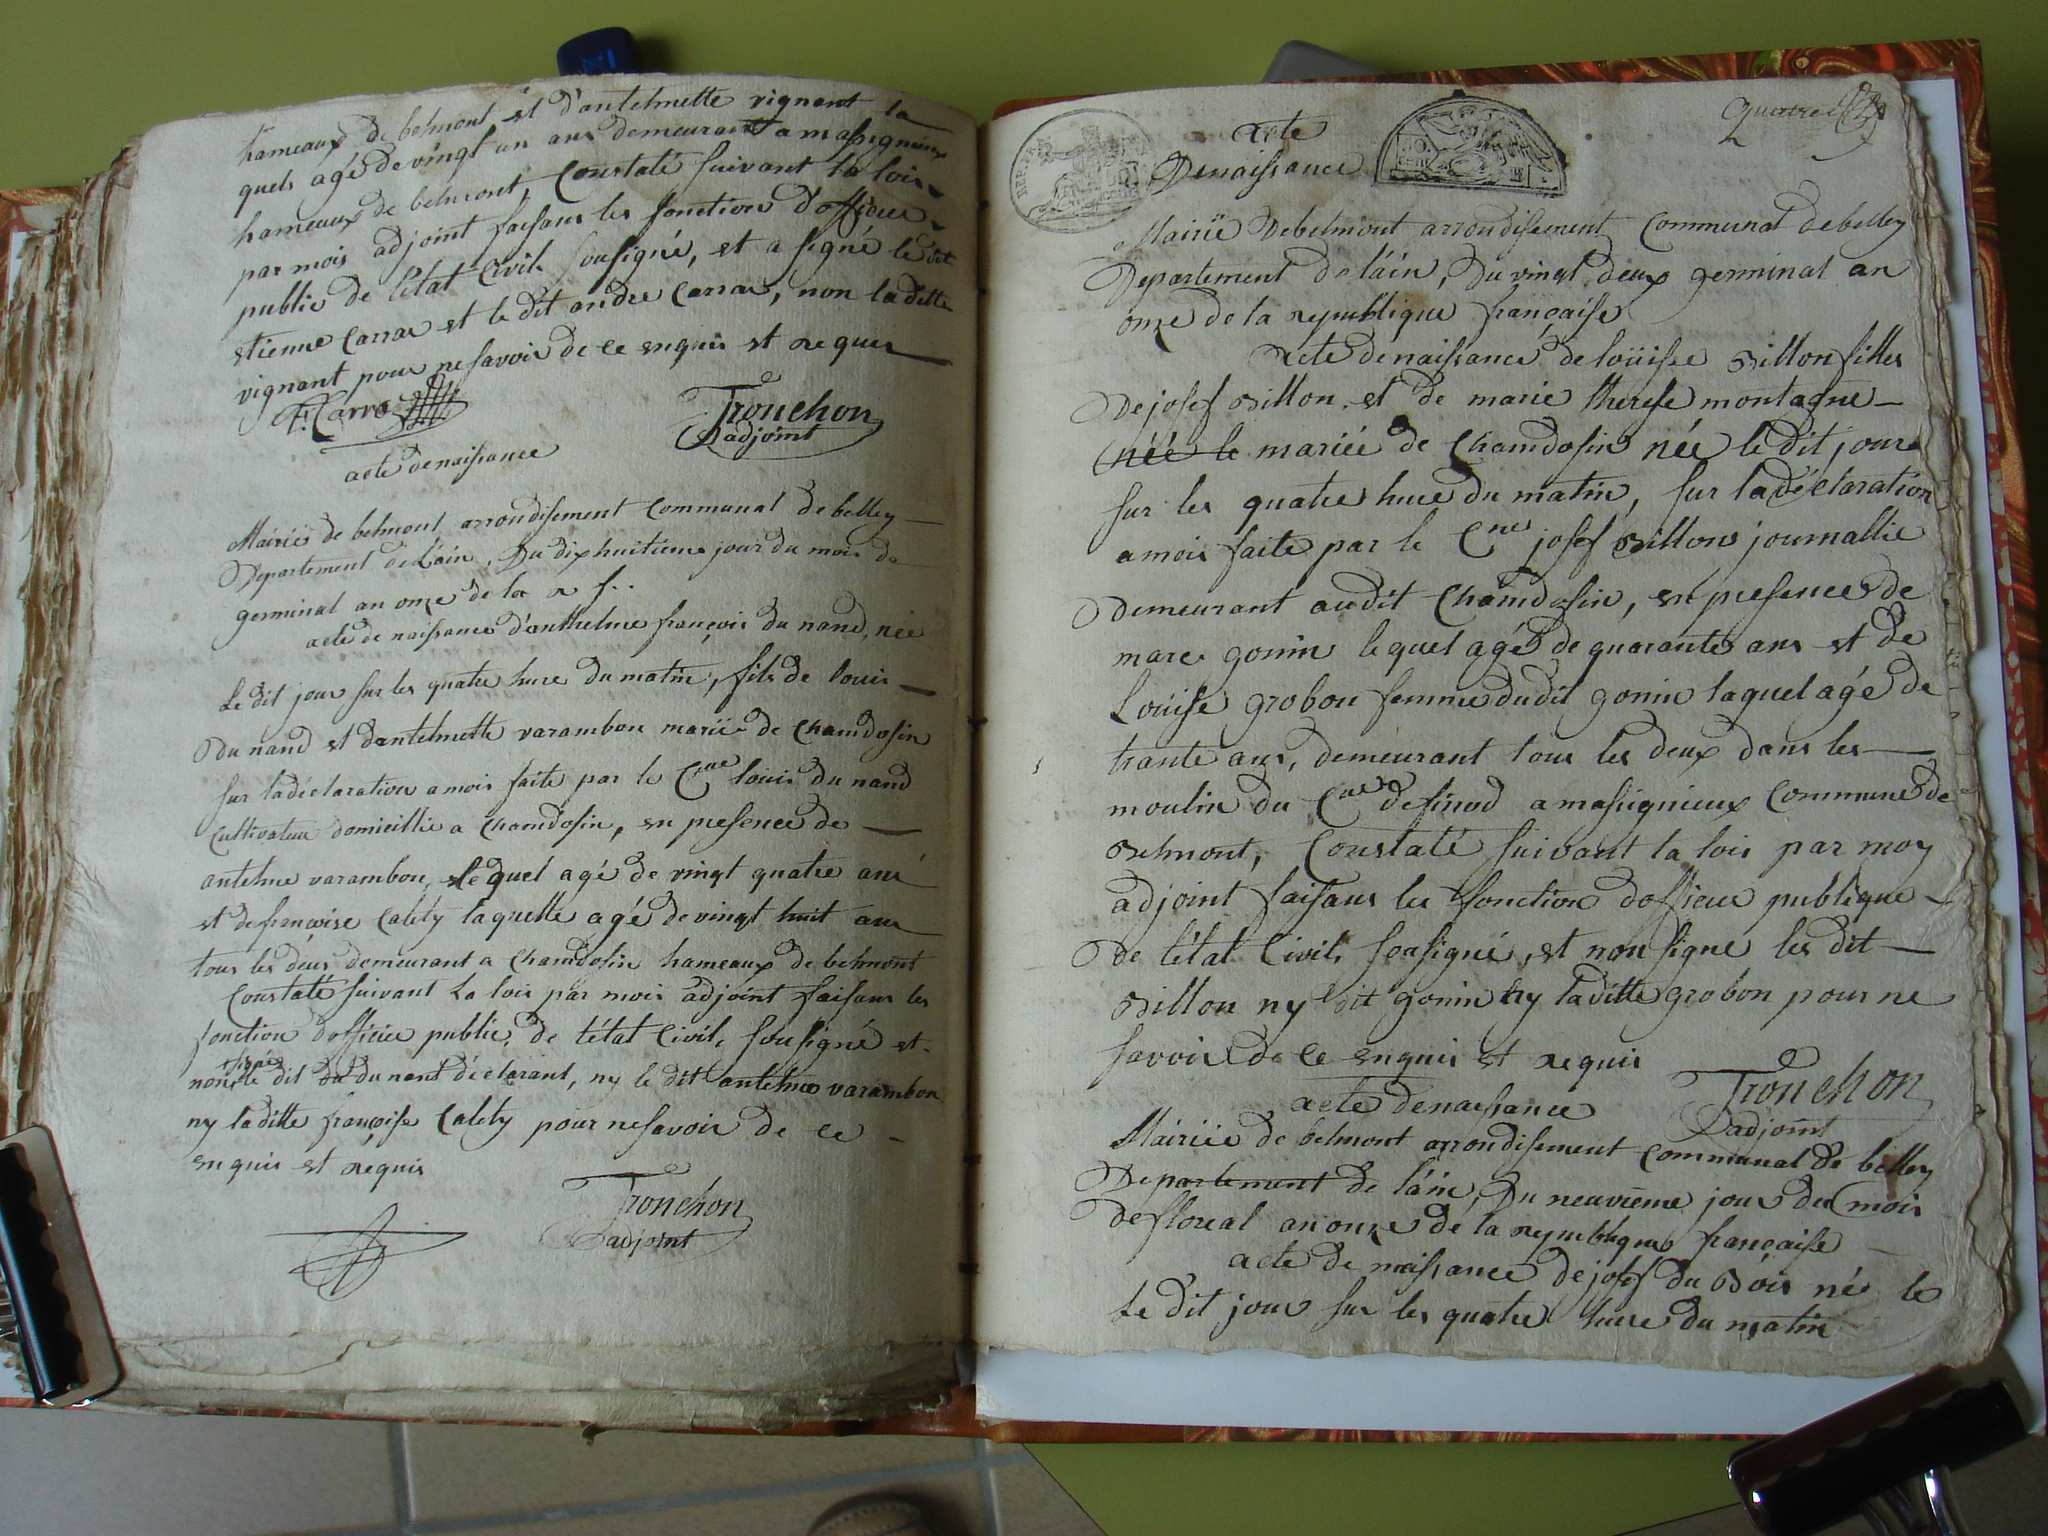 hameaux de belmont et d'antelmette vignant la
quels agé de vingt un ans demeurant a massignieux
hameaux de belmont, Constaté suivant la lois
par mois adjoint faisans les fonction d'officier
public de l'état Civil soussigné, et a signé le dit
etienne Carrar et le dit andre Carrar, non la ditte
vignant pour ne savoir de ce enquis et requis
Carra
Tronchon
adjoint
acte denaissance
Mairië de belmont arrondisement Communal de belley
Departement de L'ain, Du dix huitieme jour du mois de
germinal an onze de la r f..
acte de naissance d'anthelme françois du nand, née
Le dit jour sur les quatre hure du matin, fils de louis
Du nand et dantelmette varambon marië de Chamdosin
sur ladéclaration a mois faite par le Cne loüis du nand
Cultivateur domicillié a Chamdosin, en presence de
antelme varambon, lequel agé de vingt quatre ans
et defrançoise Calety laquelle agé de vingt huit ans
tous les deux demeurant a Chamdosin hameaux de belmont
Constaté suivant La lois par mois adjoint faisans les
fonction dofficier public de l'état Civil, sousigné et
signé
non le dit du du nant déclarant, ny le dit antelme varambon
ny laditte françoise Calety pour nesavoir de ce
enquis et requis
Tronchon
adjoint
Quatre
Acte
Denaissance
Mairië Debelmont arrondisement Communal debelley
Departement de l'ain, Du vingt deux germinal an
onze de la republique française
Acte denaissance de loüise Billon filles
De josef Billon et de marie therese montagne
née le mariée de Chamdosin née le dit jour
sur les quatre hure du matin, sur ladéclaration
amois faite par le Cne josef Billon journallié
demeurant audit Chamdosin, en presence de
marc gonin lequel agé de quarante ans et de
Loüise grobon femme dudit gonin laquel agé de
trante ans, demeurant tous les deux dans les
moulin du Cne definod a massignieux Commune de
Belmont, Constaté suivant la lois par moy
adjoint faisans les fonction dofficier publique
De l'état Civil sousigné, et non signe les dit
Billon ny dit gonin ny laditte grobon pour ne
savoir de ce enquis et requis
Tronchon
adjoint
acte denaissance
Mairiée de belmont arrondisement Communal de belley
Departement de l'ain, Du neuvieme jour du mois
defloreal an onze de la republique française
acte de naissance de josef du Bois née le
Le dit jour sur les quatre hure du matin